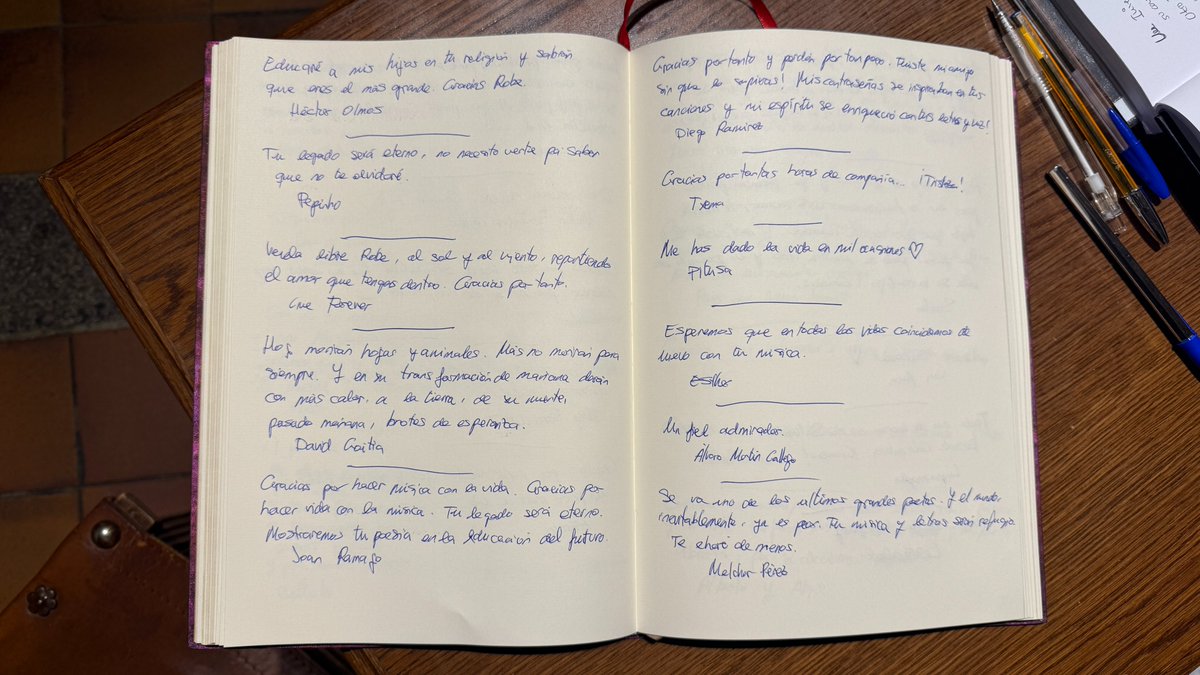 Educaré a mis hijas en tu religión y sabrán
que eres el más grande. Gracias Robe.
Héctor Olmos
Tu legado será eterno, no necesito verte pa saber
que no te olvidaré.
Pepinho
Vuela libre Robe, al sol y al viento, repartiendo
el amor que tengas dentro. Gracias por tanto.
Live Forever
Hoy morirán hojas y animales. Mas no morirán para
siempre. Y en su transformación de mañana darán
con más calor, a la tierra, de su muerte,
pasado mañana, brotes de esperanza.
David
Gracias por hacer música con la vida. Gracias por
hacer vida con la música. Tu legado será eterno.
Mostraremos tu poesía en la educación del futuro.
Joan Ramajo
Gracias por tanto y perdón por tan poco. Fuiste mi amigo
sin que lo supieras! Mis contraseñas se inspiraban en tus
canciones y mi espíritu se enriqueció con tus letras y voz!
Diego Ramírez
Gracias por tantas horas de compañía... ¡Tristeza!
Txema
Me has dado la vida en mil ocasiones ♡
Pitusa
Esperemos que en todas las vidas coincidamos de
nuevo con tu música.
Esther
Un fiel admirador.
Álvaro Martín Gallego
Se va uno de los ultimos grandes poetas. Y el mundo,
inevitablemente, ya es peor. Tu música y letras serán refugio.
Te echaré de menos.
Melchor Pérez